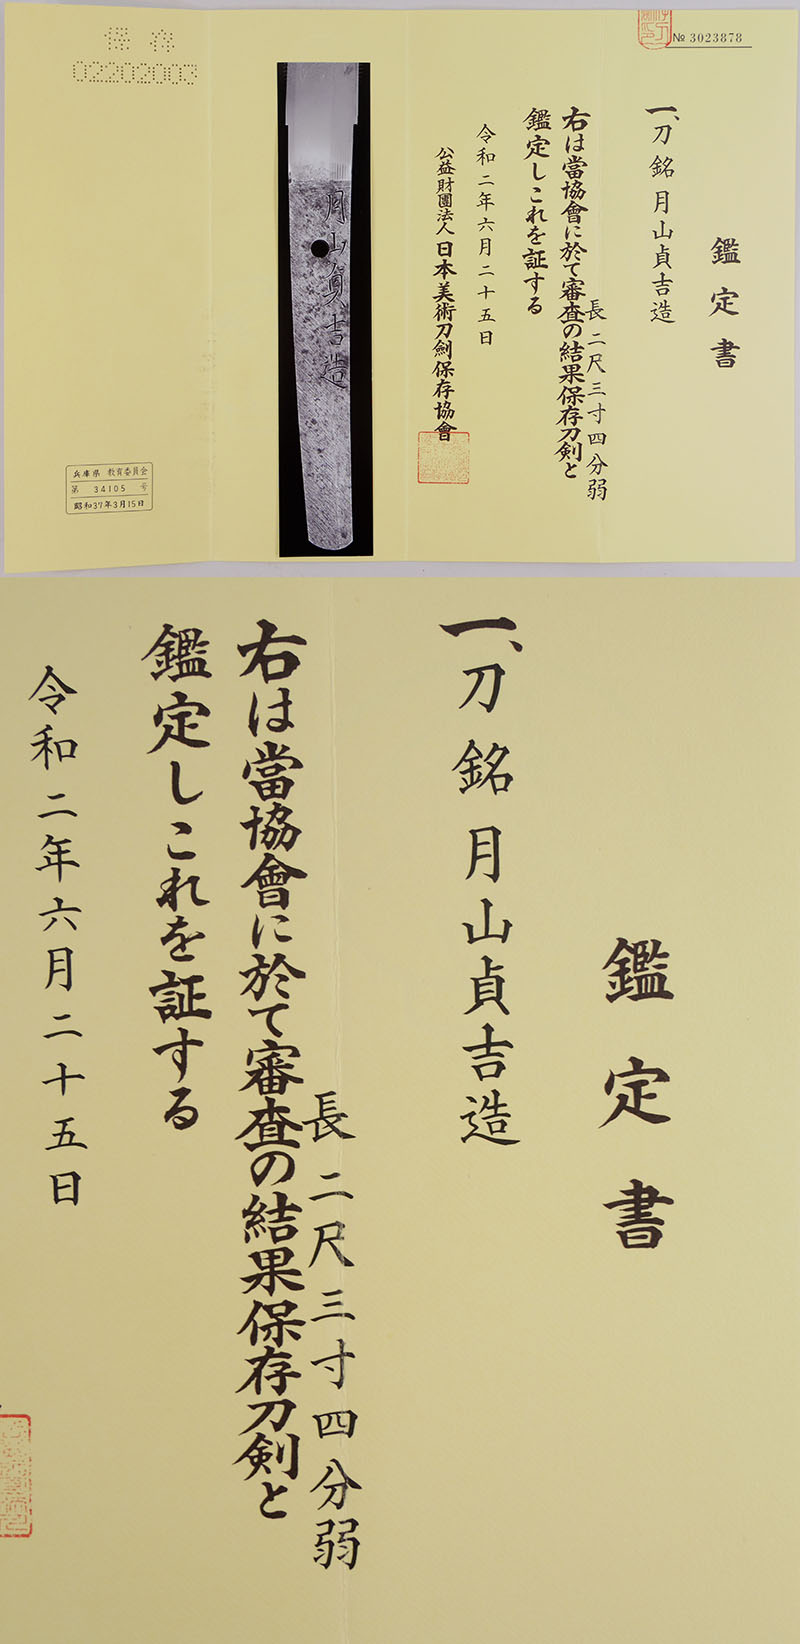 保存
02202003
№ 3023878
鑑定書
一、刀 銘 月山貞吉造
長 二尺三寸四分弱
右は當協會に於て審査の結果保存刀剣と
鑑定しこれを証する
令和二年六月二十五日
公益財團法人 日本美術刀劍保存協會
月山貞吉造
兵庫県 教育委員会
第 34105 号
昭和37年3月15日
鑑定書
一、刀 銘 月山貞吉造
長 二尺三寸四分弱
右は當協會に於て審査の結果保存刀剣と
鑑定しこれを証する
令和二年六月二十五日